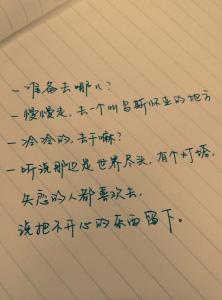 - 准备去哪儿?
- 慢慢走,去一个叫乌斯怀亚的地方
- 冷冷的,去干嘛?
- 听说那边是世界尽头,有个灯塔,
失恋的人都喜欢去,
说把不开心的东西留下。